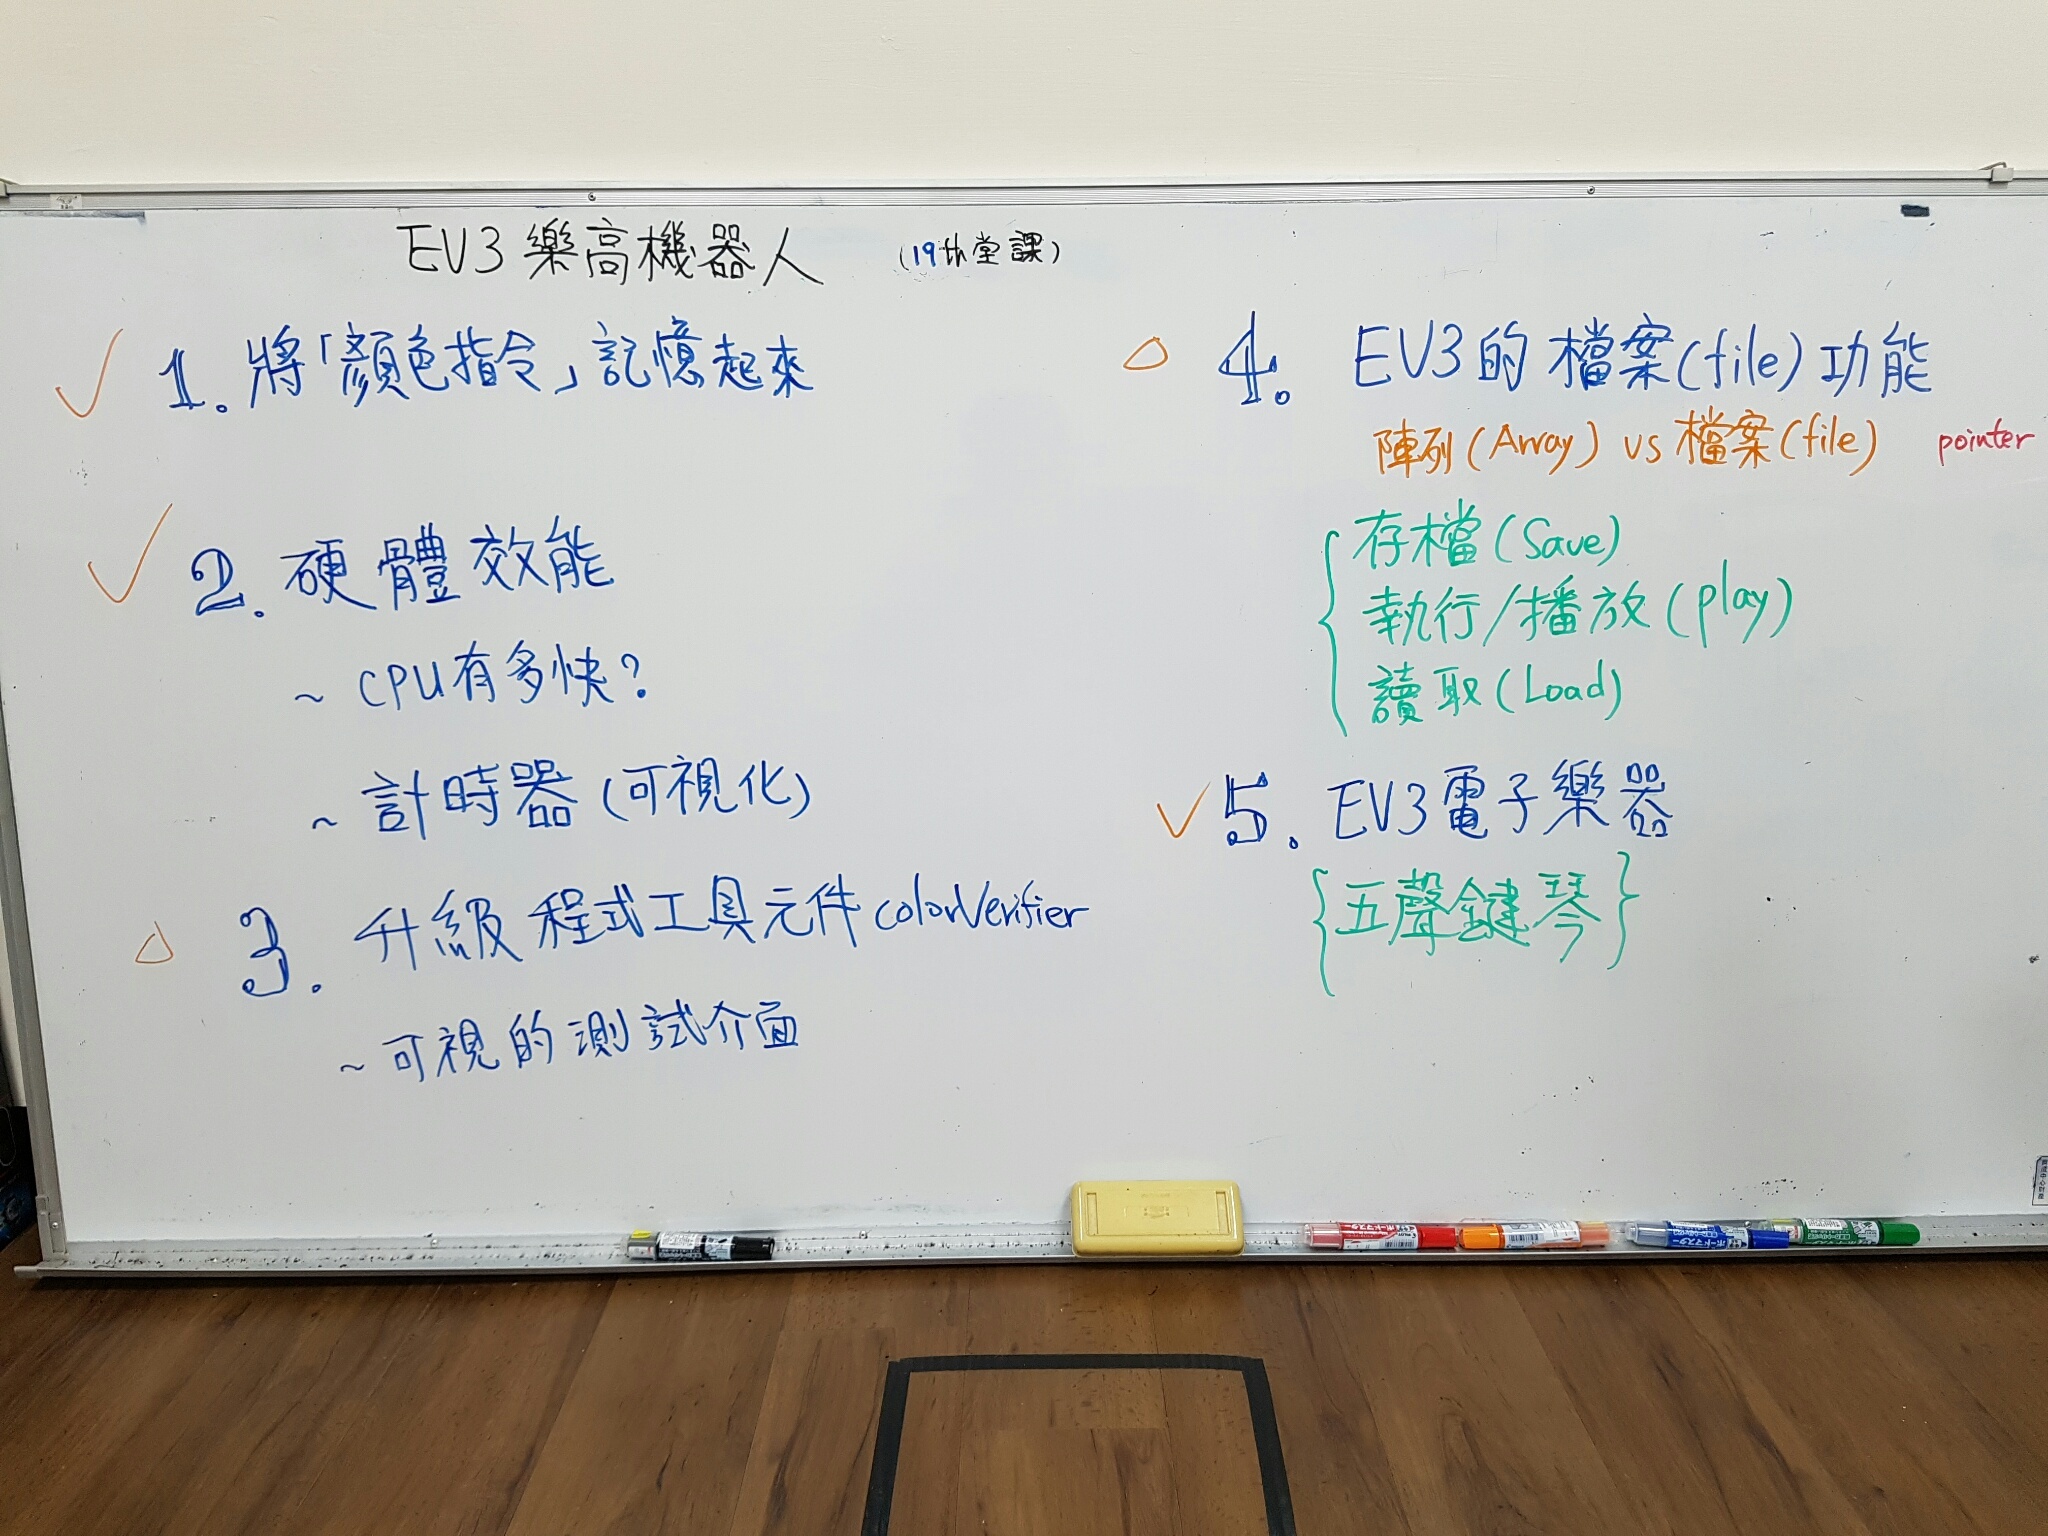 EV3 樂高機器人 (19th堂課)
1. 將「顏色指令」記憶起來
2. 硬體效能
~ CPU有多快?
~ 計時器(可視化)
3. 升級程式工具元件colorVerifier
~ 可視的測試介面
4. EV3的檔案(file)功能
陣列(Array) vs 檔案(file) pointer
存檔(Save)
執行/播放(play)
讀取(Load)
5. EV3電子樂器
{五聲鍵琴}